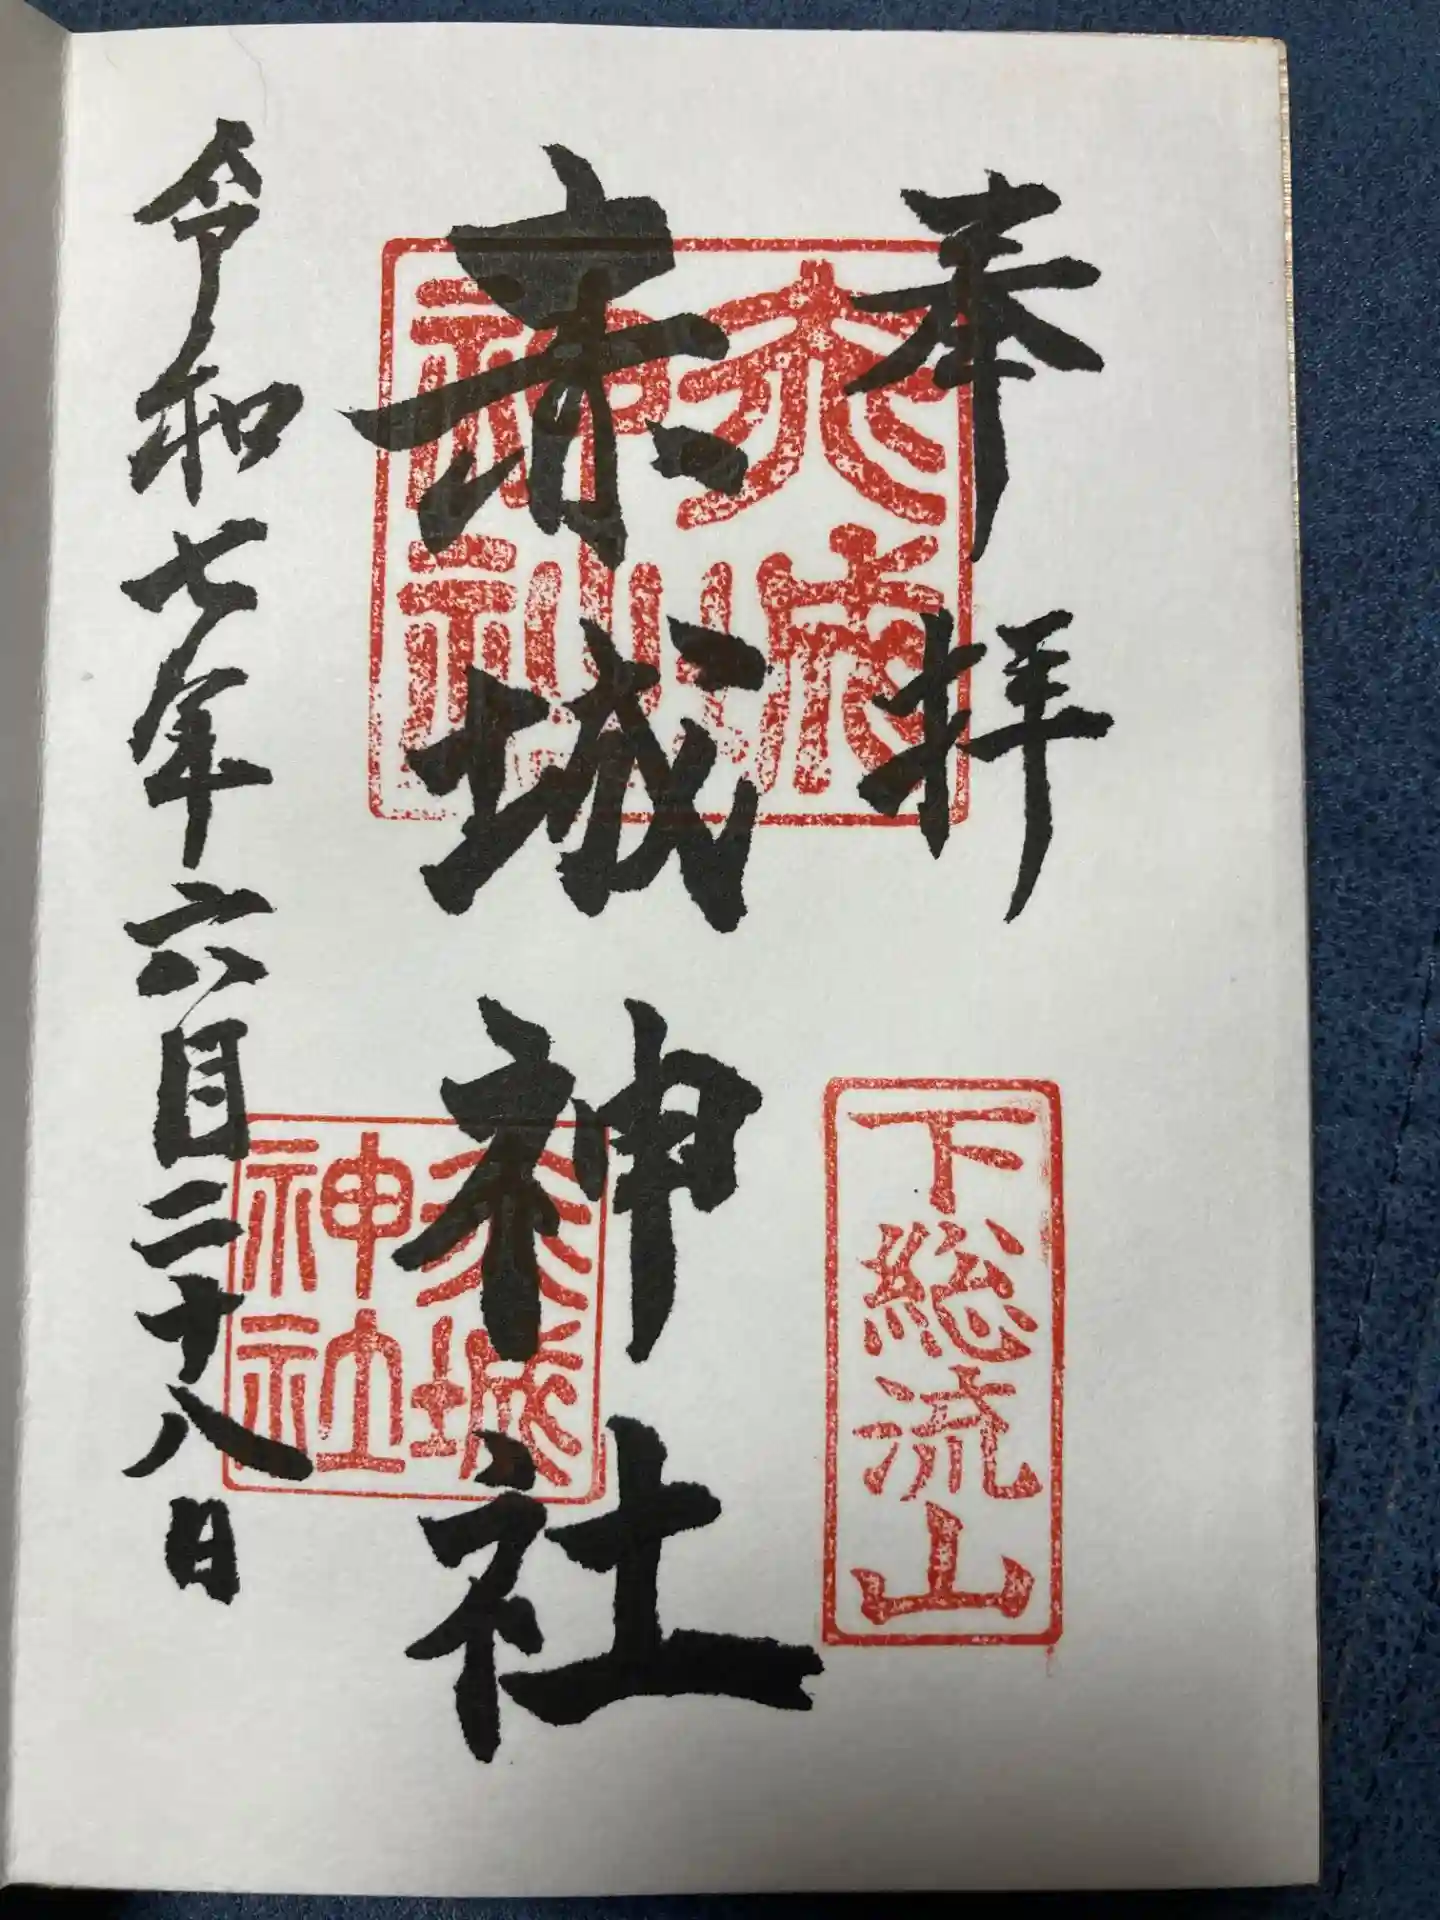 奉拝
下総流山
赤城神社
赤城
神社
令和七年六月二十八日